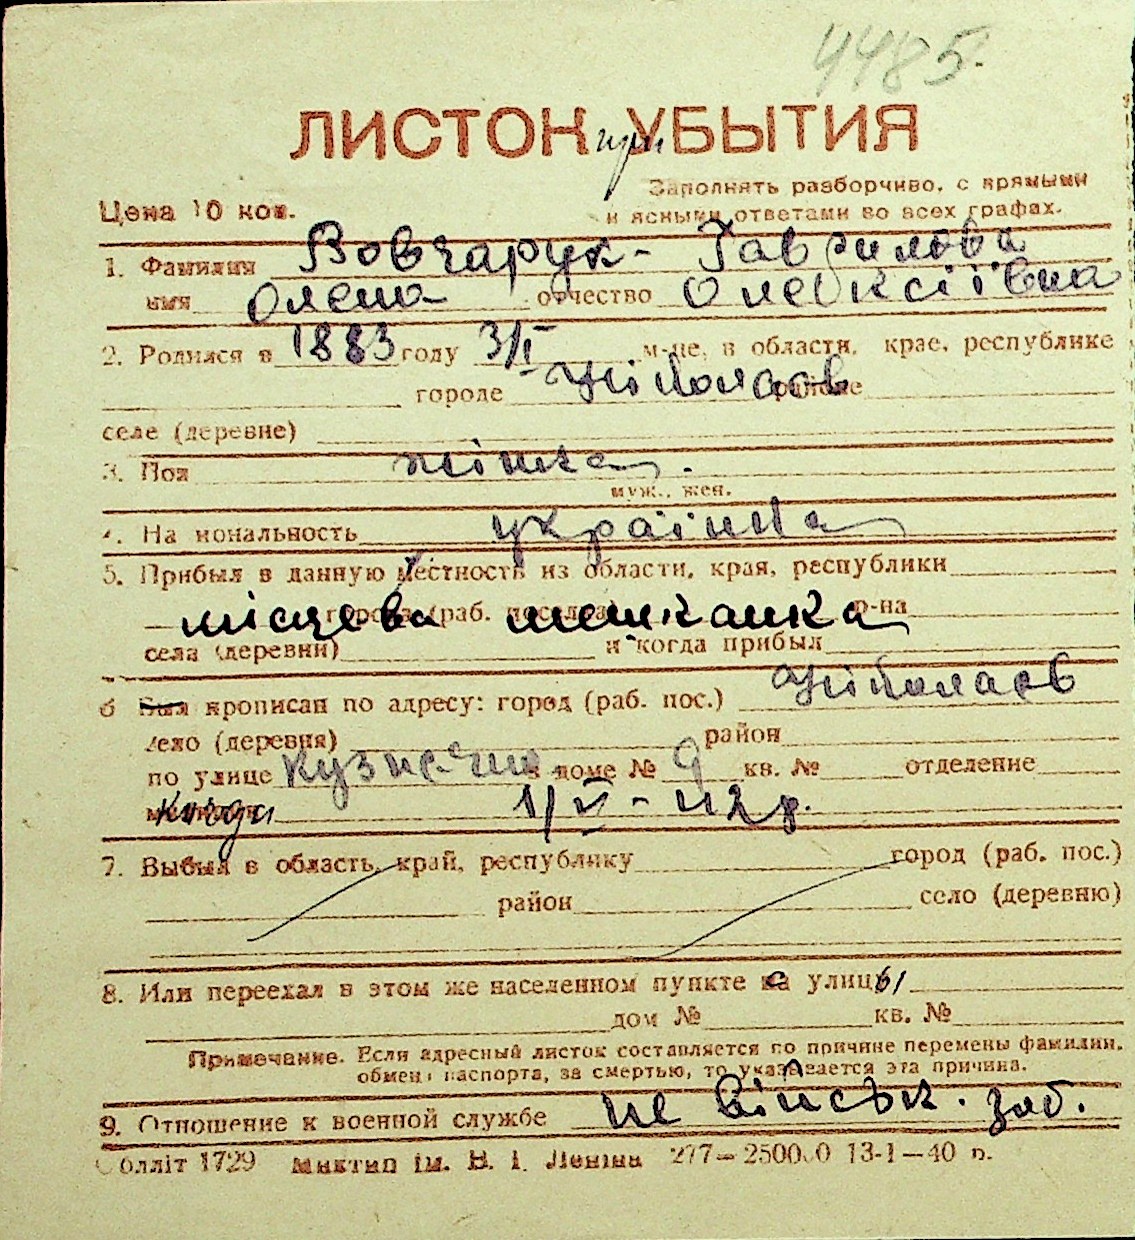 4485.
ЛИСТОК при УБЫТИЯ
Заполнять разборчиво, с прямыми
Цена 10 коп.
и ясными ответами во всех графах.
1. Фамилия Вовчарук - Гаврилова
имя Олена отчество Олексіївна
2. Родился в 1883 году 3/I м-це, в области, крае, республике
городе Ніколаєв районе
селе (деревне)
3. Пол жінка.
муж., жен.
4. Национальность українка
5. Прибыл в данную местность из области, края, республики
місцева города (раб. поселка) мешканка р-на
села (деревни) и когда прибыл
6 Был прописан по адресу: город (раб. пос.) Ніколаєв
село (деревня) район
по улице в доме № 9 кв. № отделение
милиции когда 1/VI - 42 г.
7. Выбыл в область, край, республику город (раб. пос.)
район село (деревню)
8. Или переехал в этом же населенном пункте с улицы
дом № кв. №
Примечание. Если адресный листок составляется по причине перемены фамилии,
обмена паспорта, за смертью, то указывается эта причина.
9. Отношение к военной службе не військ. зоб.
Облліт 1729 Миктип ім. В. І. Леніна 277—250000 13-1—40 р.